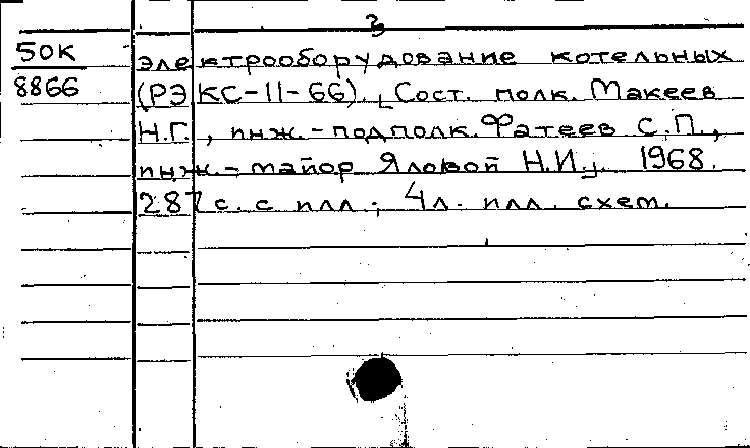 3
50К
8866
электрооборудование котельных
(РЭКС-11-66). [Сост. полк. Макеев
Н.Г., инж.-подполк. Фатеев С.П.,
инж.-майор Яловой Н.И.]. 1968.
287 с. с илл.; 4 л. илл. схем.